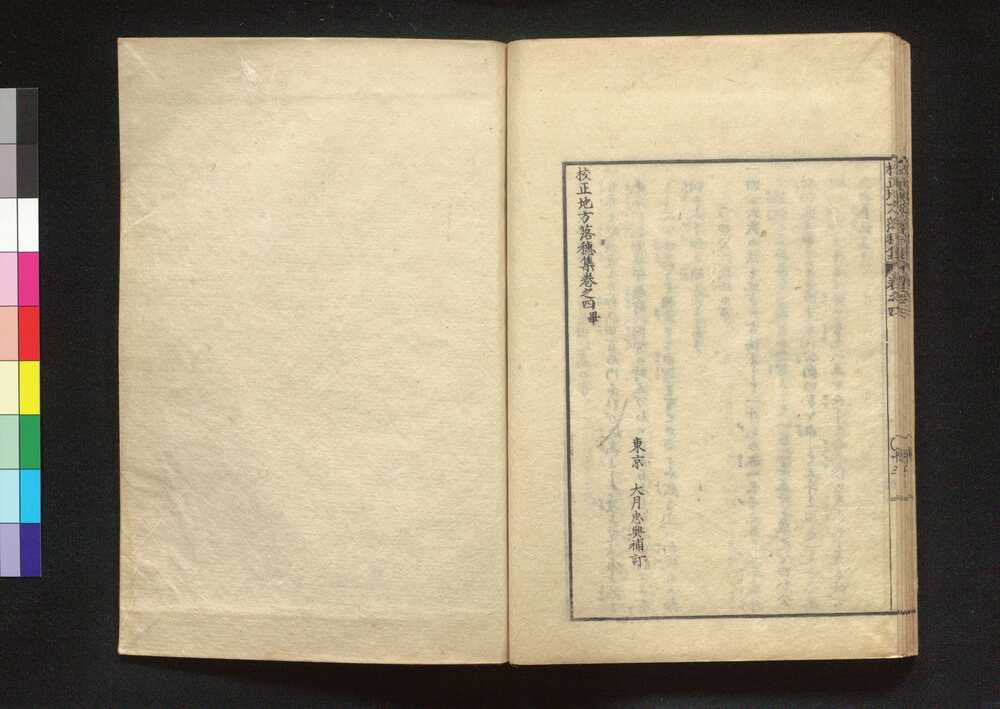 東京　大月忠興補訂
校正地方落穗集卷之四畢